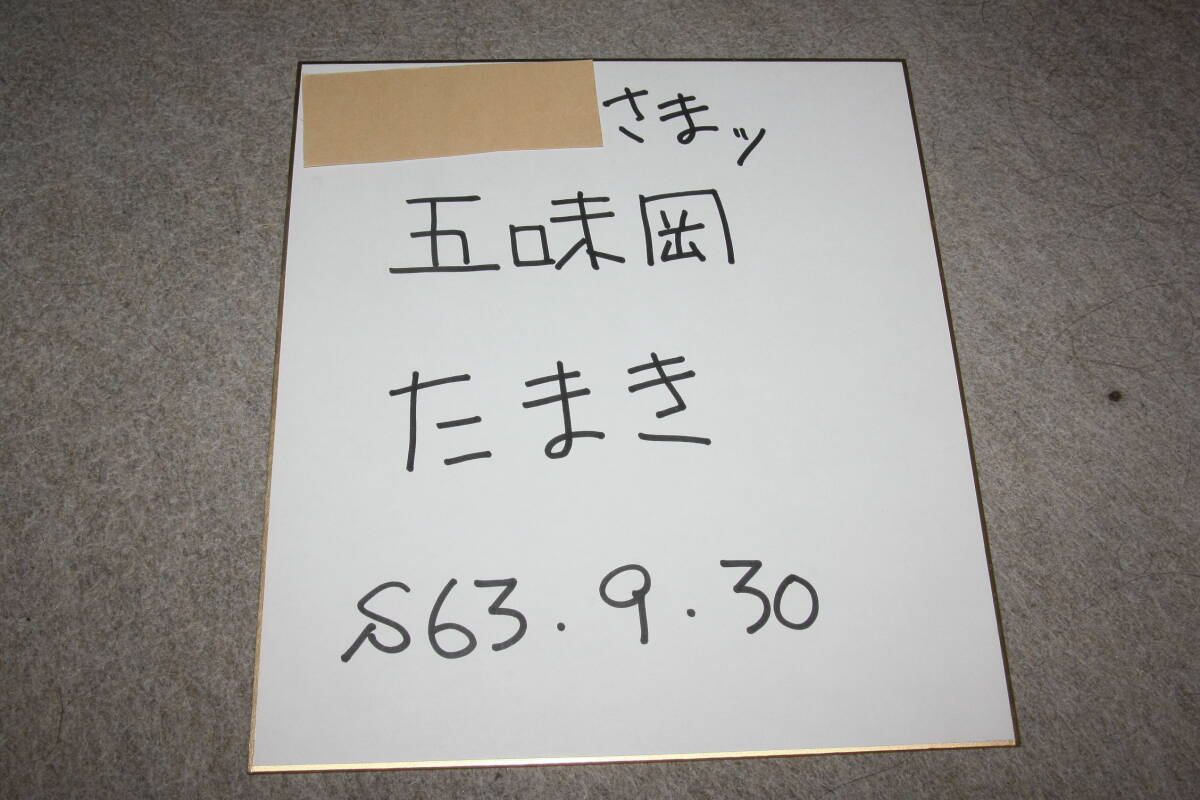 さまッ
五味岡
たまき
S63.9.30